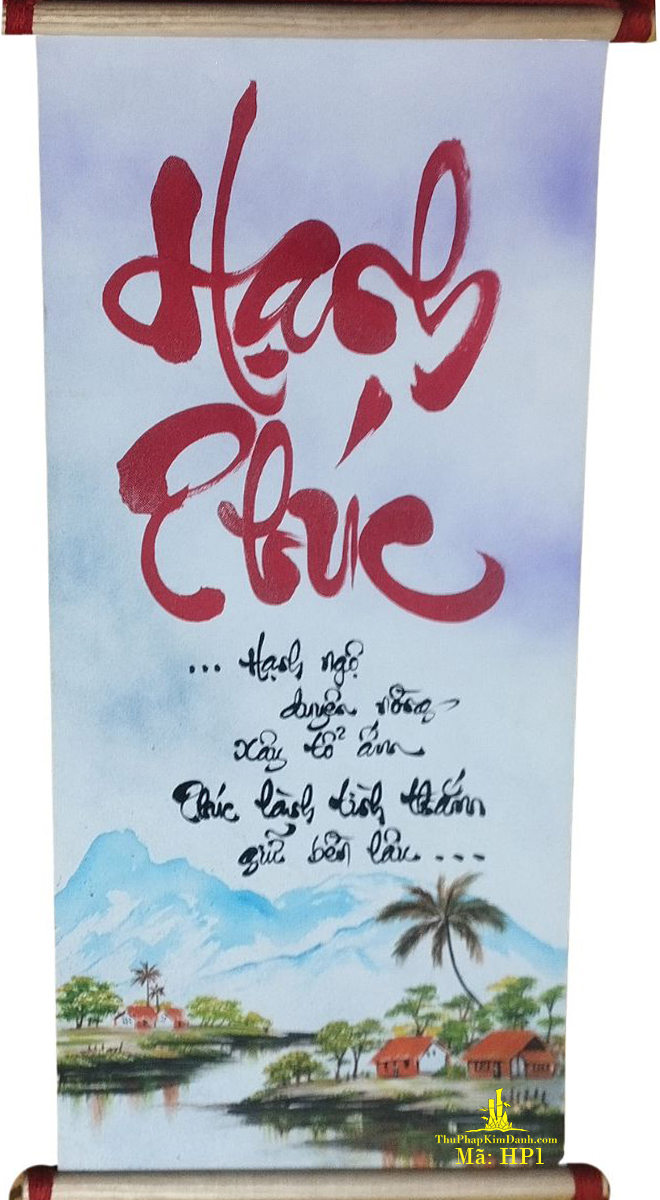 Hạnh
Phúc
... Hạnh ngộ
duyên nồng
xây tổ ấm
Phúc lành tình thắm
giữ bền lâu ....
ThuPhapKimDanh.com
Mã: HP1